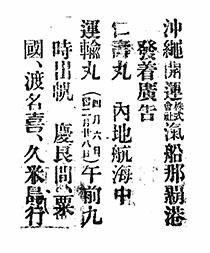 沖繩開運株式會社汽船那覇港
發着廣告
仁壽丸　內地航海中
運輸丸(四月六日旧二月廿八日)午前九
時出帆　慶良間、粟
國、渡名喜、久米島行